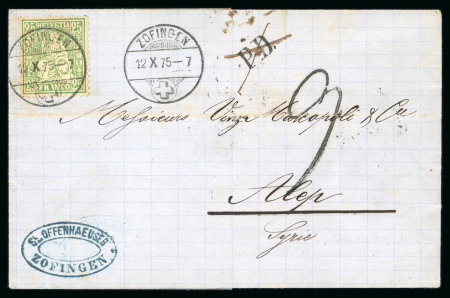 25 HELVETIA 25
FRANCO
ZOFINGEN
12 X 75–7
ZOFINGEN
12 X 75–7
P.D.
Messieurs Vinza Marcopoli & Cie
Alep
Syrie
OFFENHAEUSER
ZOFINGEN